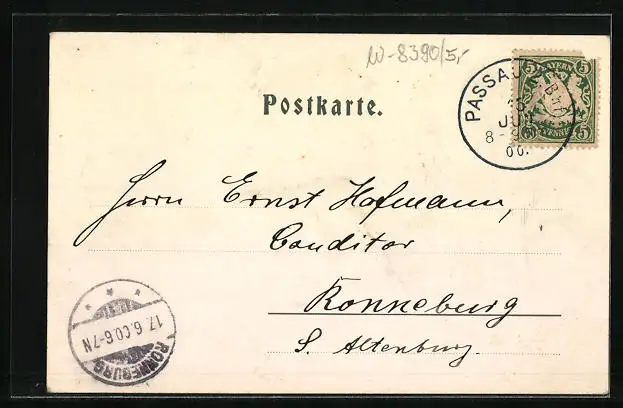 W-8390/5,-
Postkarte.
PASSAU
JUN
8-9
00.
5 BAYERN 5
5 PFENNIG 5
Herrn Ernst Hofmann,
Conditor
Ronneburg
S. Altenburg.
17.6.00.6-7N
RONNEBURG